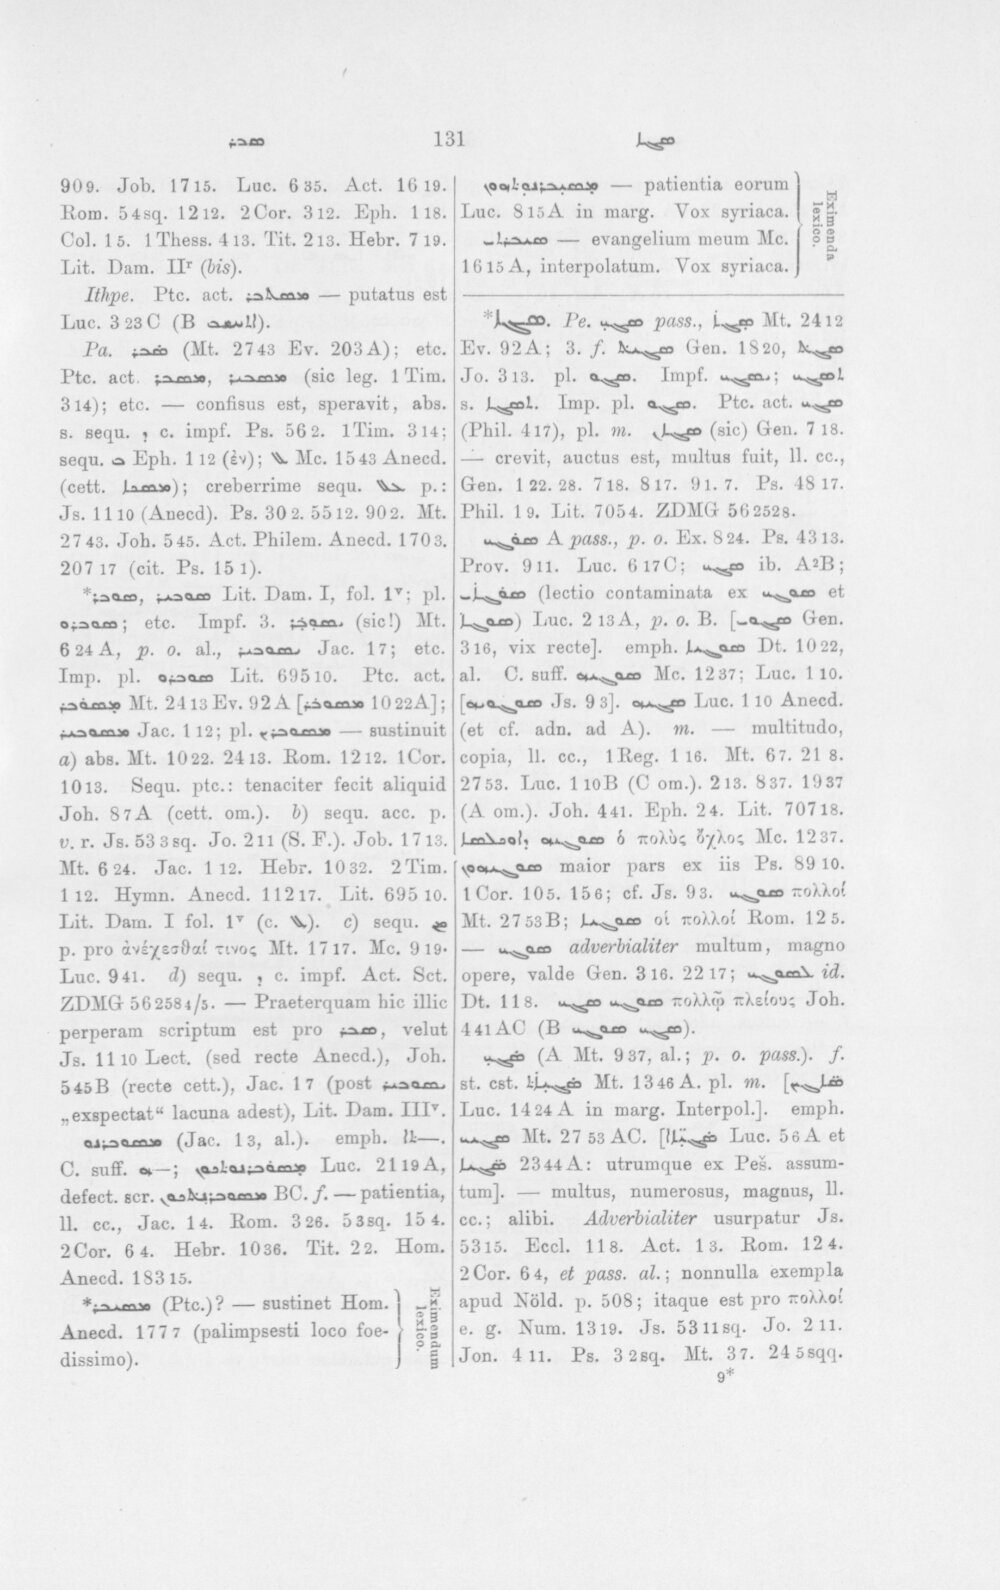 ܣܒܪ 131 ܣܓܐ
909. Job. 17 15. Luc. 6 35. Act. 16 19.
Rom. 5 4sq. 12 12. 2Cor. 3 12. Eph. 1 18.
Col. 1 5. 1Thess. 4 13. Tit. 2 13. Hebr. 7 19.
Lit. Dam. IIʳ (bis).
Ithpe. Ptc. act. ܡܣܬܒܪ — putatus est
Luc. 3 23 C (B).
Pa. ܣܒܪ (Mt. 27 43 Ev. 203 A); etc.
Ptc. act. ܡܣܒܪ, (sic leg. 1 Tim.
3 14); etc. — confisus est, speravit, abs.
s. sequ. ܕ c. impf. Ps. 56 2. 1Tim. 3 14;
sequ. ܒ Eph. 1 12 (ἐν); ܠ Mc. 15 43 Anecd.
(cett.); creberrime sequ. ܥܠ p.:
Js. 11 10 (Anecd). Ps. 30 2. 55 12. 90 2. Mt.
27 43. Joh. 5 45. Act. Philem. Anecd. 170 3.
207 17 (cit. Ps. 15 1).
*ܣܘܒܪ, ܣܘܒܝܪ Lit. Dam. I, fol. 1ᵛ; pl.
ܣܘܒܪܘ; etc. Impf. 3. (sic!) Mt.
6 24 A, p. o. al., Jac. 1 7; etc.
Imp. pl. ܣܘܒܪܘ Lit. 695 10. Ptc. act.
ܡܣܘܒܪ Mt. 24 13 Ev. 92 A [ܡܣܘܒܪ 10 22 A];
ܡܣܘܒܝܪ Jac. 1 12; pl. ܡܣܘܒܪܝܢ — sustinuit
a) abs. Mt. 10 22. 24 13. Rom. 12 12. 1Cor.
10 13. Sequ. ptc.: tenaciter fecit aliquid
Joh. 8 7 A (cett. om.). b) sequ. acc. p.
v. r. Js. 53 3 sq. Jo. 2 11 (S. F.). Job. 17 13.
Mt. 6 24. Jac. 1 12. Hebr. 10 32. 2 Tim.
1 12. Hymn. Anecd. 112 17. Lit. 695 10.
Lit. Dam. I fol. 1ᵛ (c. ܠ). c) sequ. ܡܢ
p. pro ἀνέχεσθαί τινος Mt. 17 17. Mc. 9 19.
Luc. 9 41. d) sequ. ܕ c. impf. Act. Sct.
ZDMG 56 258 4/5. — Praeterquam hic illic
perperam scriptum est pro ܣܒܪ, velut
Js. 11 10 Lect. (sed recte Anecd.), Joh.
5 45 B (recte cett.), Jac. 1 7 (post
„exspectat“ lacuna adest), Lit. Dam. IIIᵛ.
ܡܣܘܒܪܢܘ (Jac. 1 3, al.). emph. —ܬܐ.
C. suff. —ܗ; Luc. 21 19 A,
defect. scr. BC. f. — patientia,
ll. cc., Jac. 1 4. Rom. 3 26. 5 3sq. 15 4.
2Cor. 6 4. Hebr. 10 36. Tit. 2 2. Hom.
Anecd. 183 15.
*ܡܣܝܒܪ (Ptc.)? — sustinet Hom.
Anecd. 177 7 (palimpsesti loco foe-
dissimo).
Eximendum
lexico.
ܡܣܝܒܪܢܘܬܗܘܢ — patientia eorum
Luc. 8 15 A in marg. Vox syriaca.
ܣܒܪܬܝ — evangelium meum Mc.
16 15 A, interpolatum. Vox syriaca.
Eximenda
lexico.
*ܣܓܐ. Pe. ܣܓܝ pass., Mt. 24 12
Ev. 92 A; 3. f. ܣܓܝܬ Gen. 18 20, ܣܓܬ
Jo. 3 13. pl. ܣܓܘ. Impf. ܝܣܓܐ;
s. Imp. pl. ܣܓܘ. Ptc. act. ܣܓܝ
(Phil. 4 17), pl. m. (sic) Gen. 7 18.
— crevit, auctus est, multus fuit, ll. cc.,
Gen. 1 22. 28. 7 18. 8 17. 9 1. 7. Ps. 48 17.
Phil. 1 9. Lit. 705 4. ZDMG 56 252 8.
ܣܘܓܝ A pass., p. o. Ex. 8 24. Ps. 43 13.
Prov. 9 11. Luc. 6 17 C; ܣܓܝ ib. A²B;
(lectio contaminata ex ܣܘܓܝ et
ܣܘܓܐ) Luc. 2 13 A, p. o. B. [Gen.
3 16, vix recte]. emph. ܣܘܓܝܐ Dt. 10 22,
al. C. suff. ܣܘܓܝܗ Mc. 12 37; Luc. 1 10.
[Js. 9 3]. ܣܓܝܗ Luc. 1 10 Anecd.
(et cf. adn. ad A). m. — multitudo,
copia, ll. cc., 1Reg. 1 16. Mt. 6 7. 21 8.
27 53. Luc. 1 10 B (C om.). 2 13. 8 37. 19 37
(A om.). Joh. 4 41. Eph. 2 4. Lit. 707 18.
ܣܘܓܝܗ ὁ πολὺς ὄχλος Mc. 12 37.
ܣܘܓܝܗܘܢ maior pars ex iis Ps. 89 10.
1Cor. 10 5. 15 6; cf. Js. 9 3. ܣܘܓܝ πολλοί
Mt. 27 53 B; ܣܘܓܝܐ οἱ πολλοί Rom. 12 5.
— ܣܘܓܝ adverbialiter multum, magno
opere, valde Gen. 3 16. 22 17; ܠܣܘܓܝ id.
Dt. 11 8. ܣܘܓܝ ܣܓܝ πολλῷ πλείους Joh.
4 41 AC (B ܣܓܝ ܣܘܓܝ).
ܣܓܝ (A Mt. 9 37, al.; p. o. pass.). f.
st. cst. Mt. 13 46 A. pl. m. [
Luc. 14 24 A in marg. Interpol.]. emph.
Mt. 27 53 AC. [Luc. 5 6 A et
23 44 A: utrumque ex Peš. assum-
tum]. — multus, numerosus, magnus, ll.
cc.; alibi. Adverbialiter usurpatur Js.
53 15. Eccl. 11 8. Act. 1 3. Rom. 12 4.
2Cor. 6 4, et pass. al.; nonnulla exempla
apud Nöld. p. 508; itaque est pro πολλοί
e. g. Num. 13 19. Js. 53 11 sq. Jo. 2 11.
Jon. 4 11. Ps. 3 2sq. Mt. 3 7. 24 5 sqq.
9*